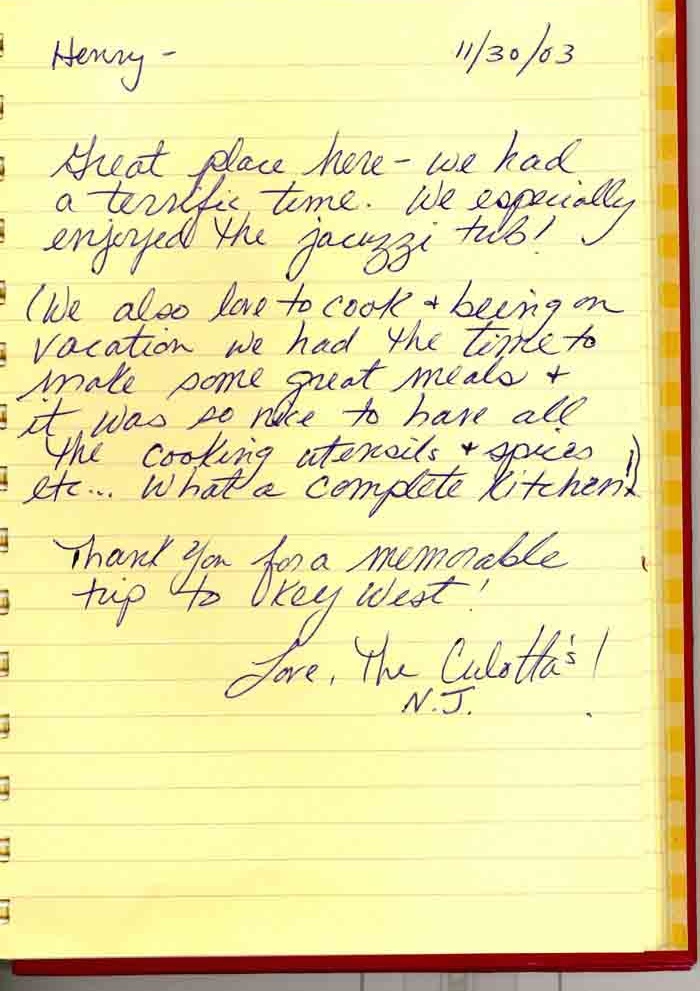 Henry - 11/30/03
Great place here - we had
a terrific time. We especially
enjoyed the jacuzzi tub!
(We also love to cook + being on
vacation we had the time to
make some great meals +
it was so nice to have all
the cooking utensils + spices
etc... What a complete kitchen!)
Thank You for a memorable
trip to Key West!
Love, The Culotta's!
N.J.